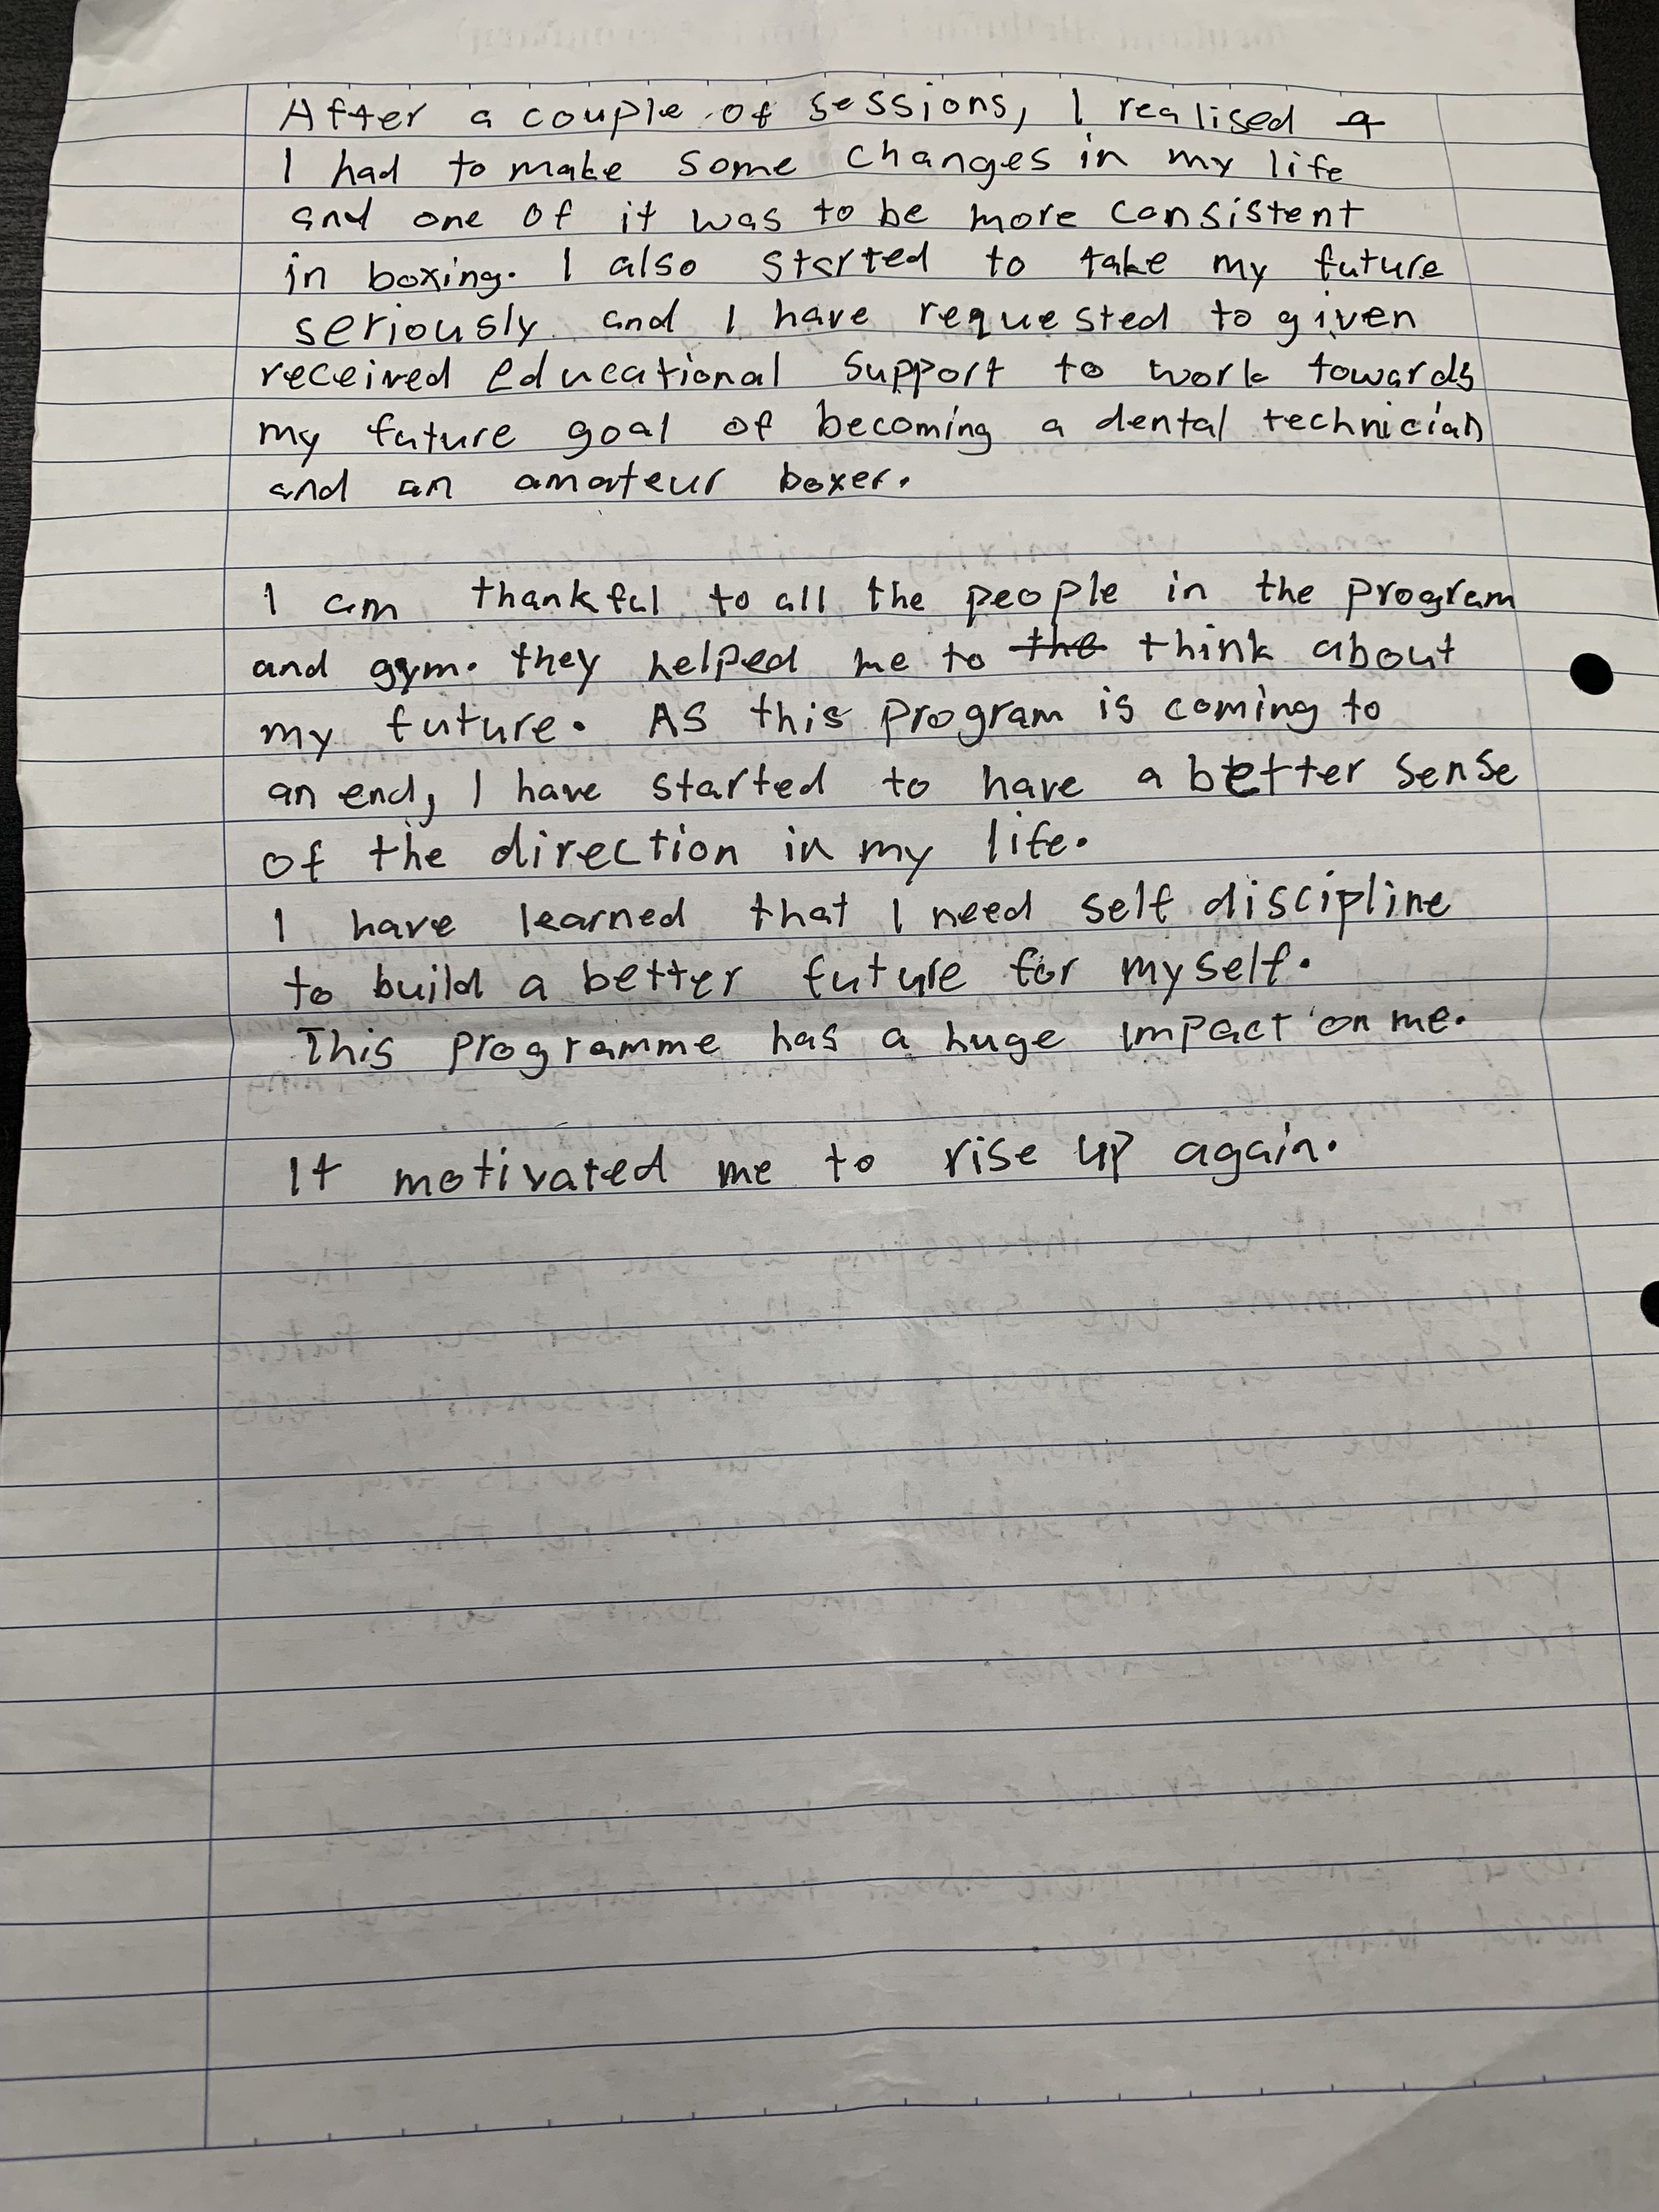 After a couple of sessions, I realised
I had to make some changes in my life
and one of it was to be more consistent
in boxing. I also started to take my future
seriously and I have requested to given
received educational support to work towards
my future goal of becoming a dental technician
and an amateur boxer.
I am thankful to all the people in the program
and gym. they helped me to the think about
my future. As this program is coming to
an end, I have started to have a better sense
of the direction in my life.
I have learned that I need self discipline
to build a better future for myself.
This programme has a huge impact on me.
It motivated me to rise up again.